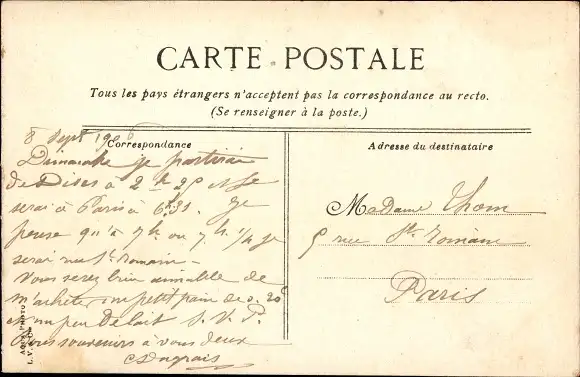 CARTE POSTALE
Tous les pays étrangers n'acceptent pas la correspondance au recto.
(Se renseigner à la poste.)
8 Sept 190
Correspondance
Dimanche je partirai
de Dives à 2 h 25 et je
serai à Paris à 6h31. Je
pense qu'à 7 h. ou 7 h. 1/4 je
serai rue St. Romain -
Vous serez bien aimable de
m'acheter un petit pain de 0.20c
et un peu de lait S. V. P.
souvenirs à vous deux
Adresse du destinataire
Madame Thom
5 rue St. Romain
Paris